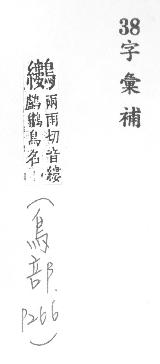 38字彙補
兩雨切音縷
鳥名
(鳥部.
P266)